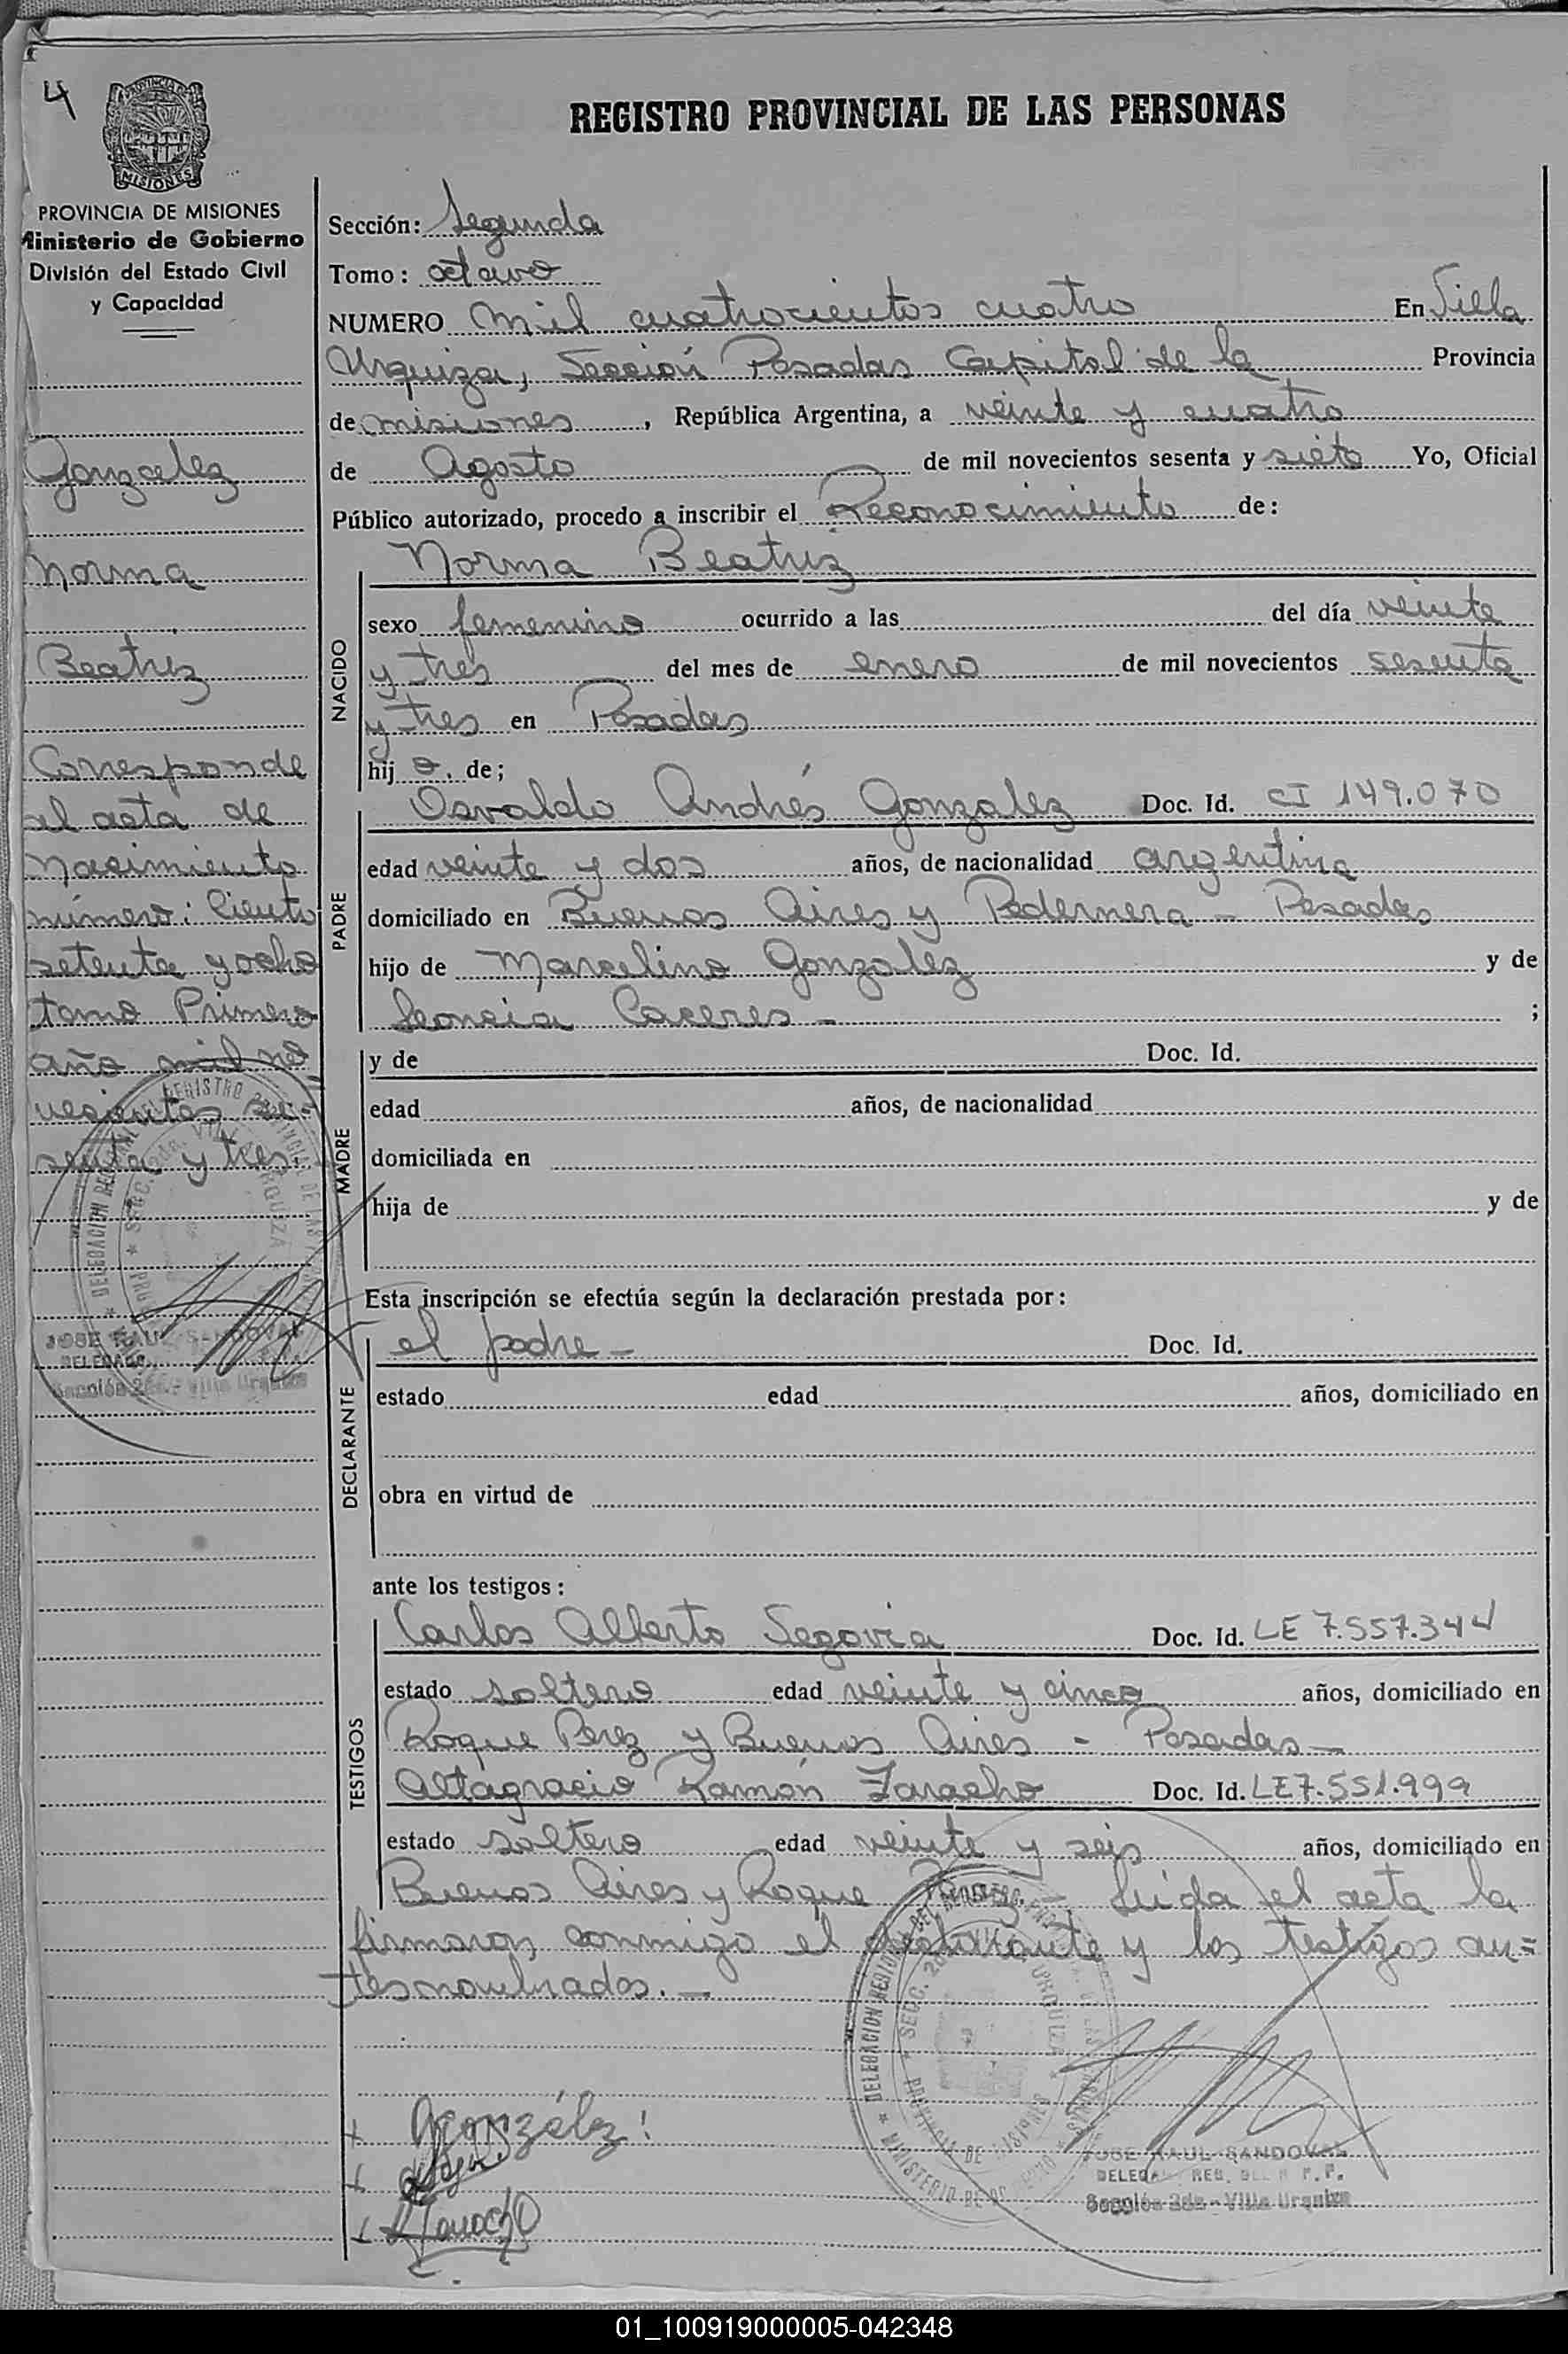 4
REGISTRO PROVINCIAL DE LAS PERSONAS
MISIONES
PROVINCIA DE MISIONES
Ministerio de Gobierno
División del Estado Civil
y Capacidad
Gonzalez
Norma
Beatriz
Corresponde
al acta de
Nacimiento
número: Ciento
setenta y ocho
tomo Primero
año mil no
vecientos se=
senta y tres.
JOSE RAUL SANDOVAL
DELEGADO
Sección 2da - Villa Urquiza
Sección: Segunda
Tomo: octavo
NUMERO mil cuatrocientos cuatro En Villa
Urquiza, Sección Posadas Capital de la Provincia
de misiones, República Argentina, a veinte y cuatro
de Agosto de mil novecientos sesenta y siete Yo, Oficial
Público autorizado, procedo a inscribir el Reconocimiento de:
NACIDO
Norma Beatriz
sexo femenino ocurrido a las del día veinte
y tres del mes de enero de mil novecientos sesenta
y tres en Posadas
hij a. de;
PADRE
Osvaldo Andrés Gonzalez Doc. Id. CI 149.070
edad veinte y dos años, de nacionalidad argentina
domiciliado en Buenos Aires y Pedernera - Posadas
hijo de Marcelino Gonzalez y de
Leoncia Caceres - ;
MADRE
y de Doc. Id.
edad años, de nacionalidad
domiciliada en
hija de y de
Esta inscripción se efectúa según la declaración prestada por:
DECLARANTE
el padre - Doc. Id.
estado edad años, domiciliado en
obra en virtud de
ante los testigos:
TESTIGOS
Carlos Alberto Segovia Doc. Id. LE 7.557.344
estado soltero edad veinte y cinco años, domiciliado en
Roque Perez y Buenos Aires - Posadas -
Altagracio Ramón Faracho Doc. Id. LE 7.551.999
estado soltero edad veinte y seis años, domiciliado en
Buenos Aires y Roque Perez - Leida el acta la
firmaron conmigo el declarante y los testigos an=
tesnombrados. -
DELEGACION REGIONAL DEL REGISTRO PROVINCIAL DE LAS PERSONAS
SECC. 2da. VILLA URQUIZA
PROVINCIA DE MISIONES
MINISTERIO DE GOBIERNO
x González
JOSE RAUL SANDOVAL
DELEGADO REG. DEL R. P. P.
Sección 2da - Villa Urquiza
01_100919000005-042348